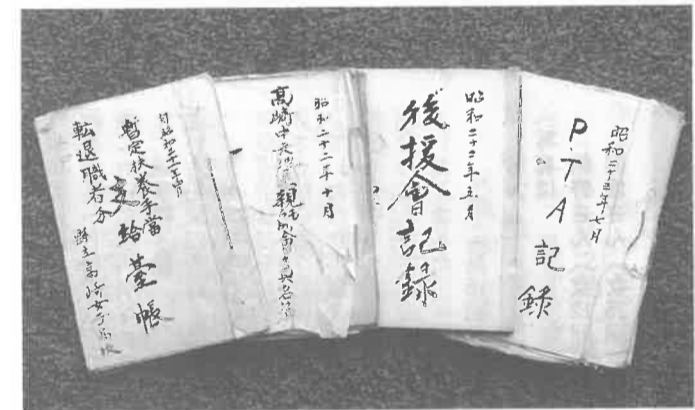 昭和二十三年七月
P.T.A記録
昭和二十二年五月
後援會記録
昭和二十二年十月
高崎中央 親師會
暫定扶養手當
支給臺帳
転退職者分
縣立高崎女子高校